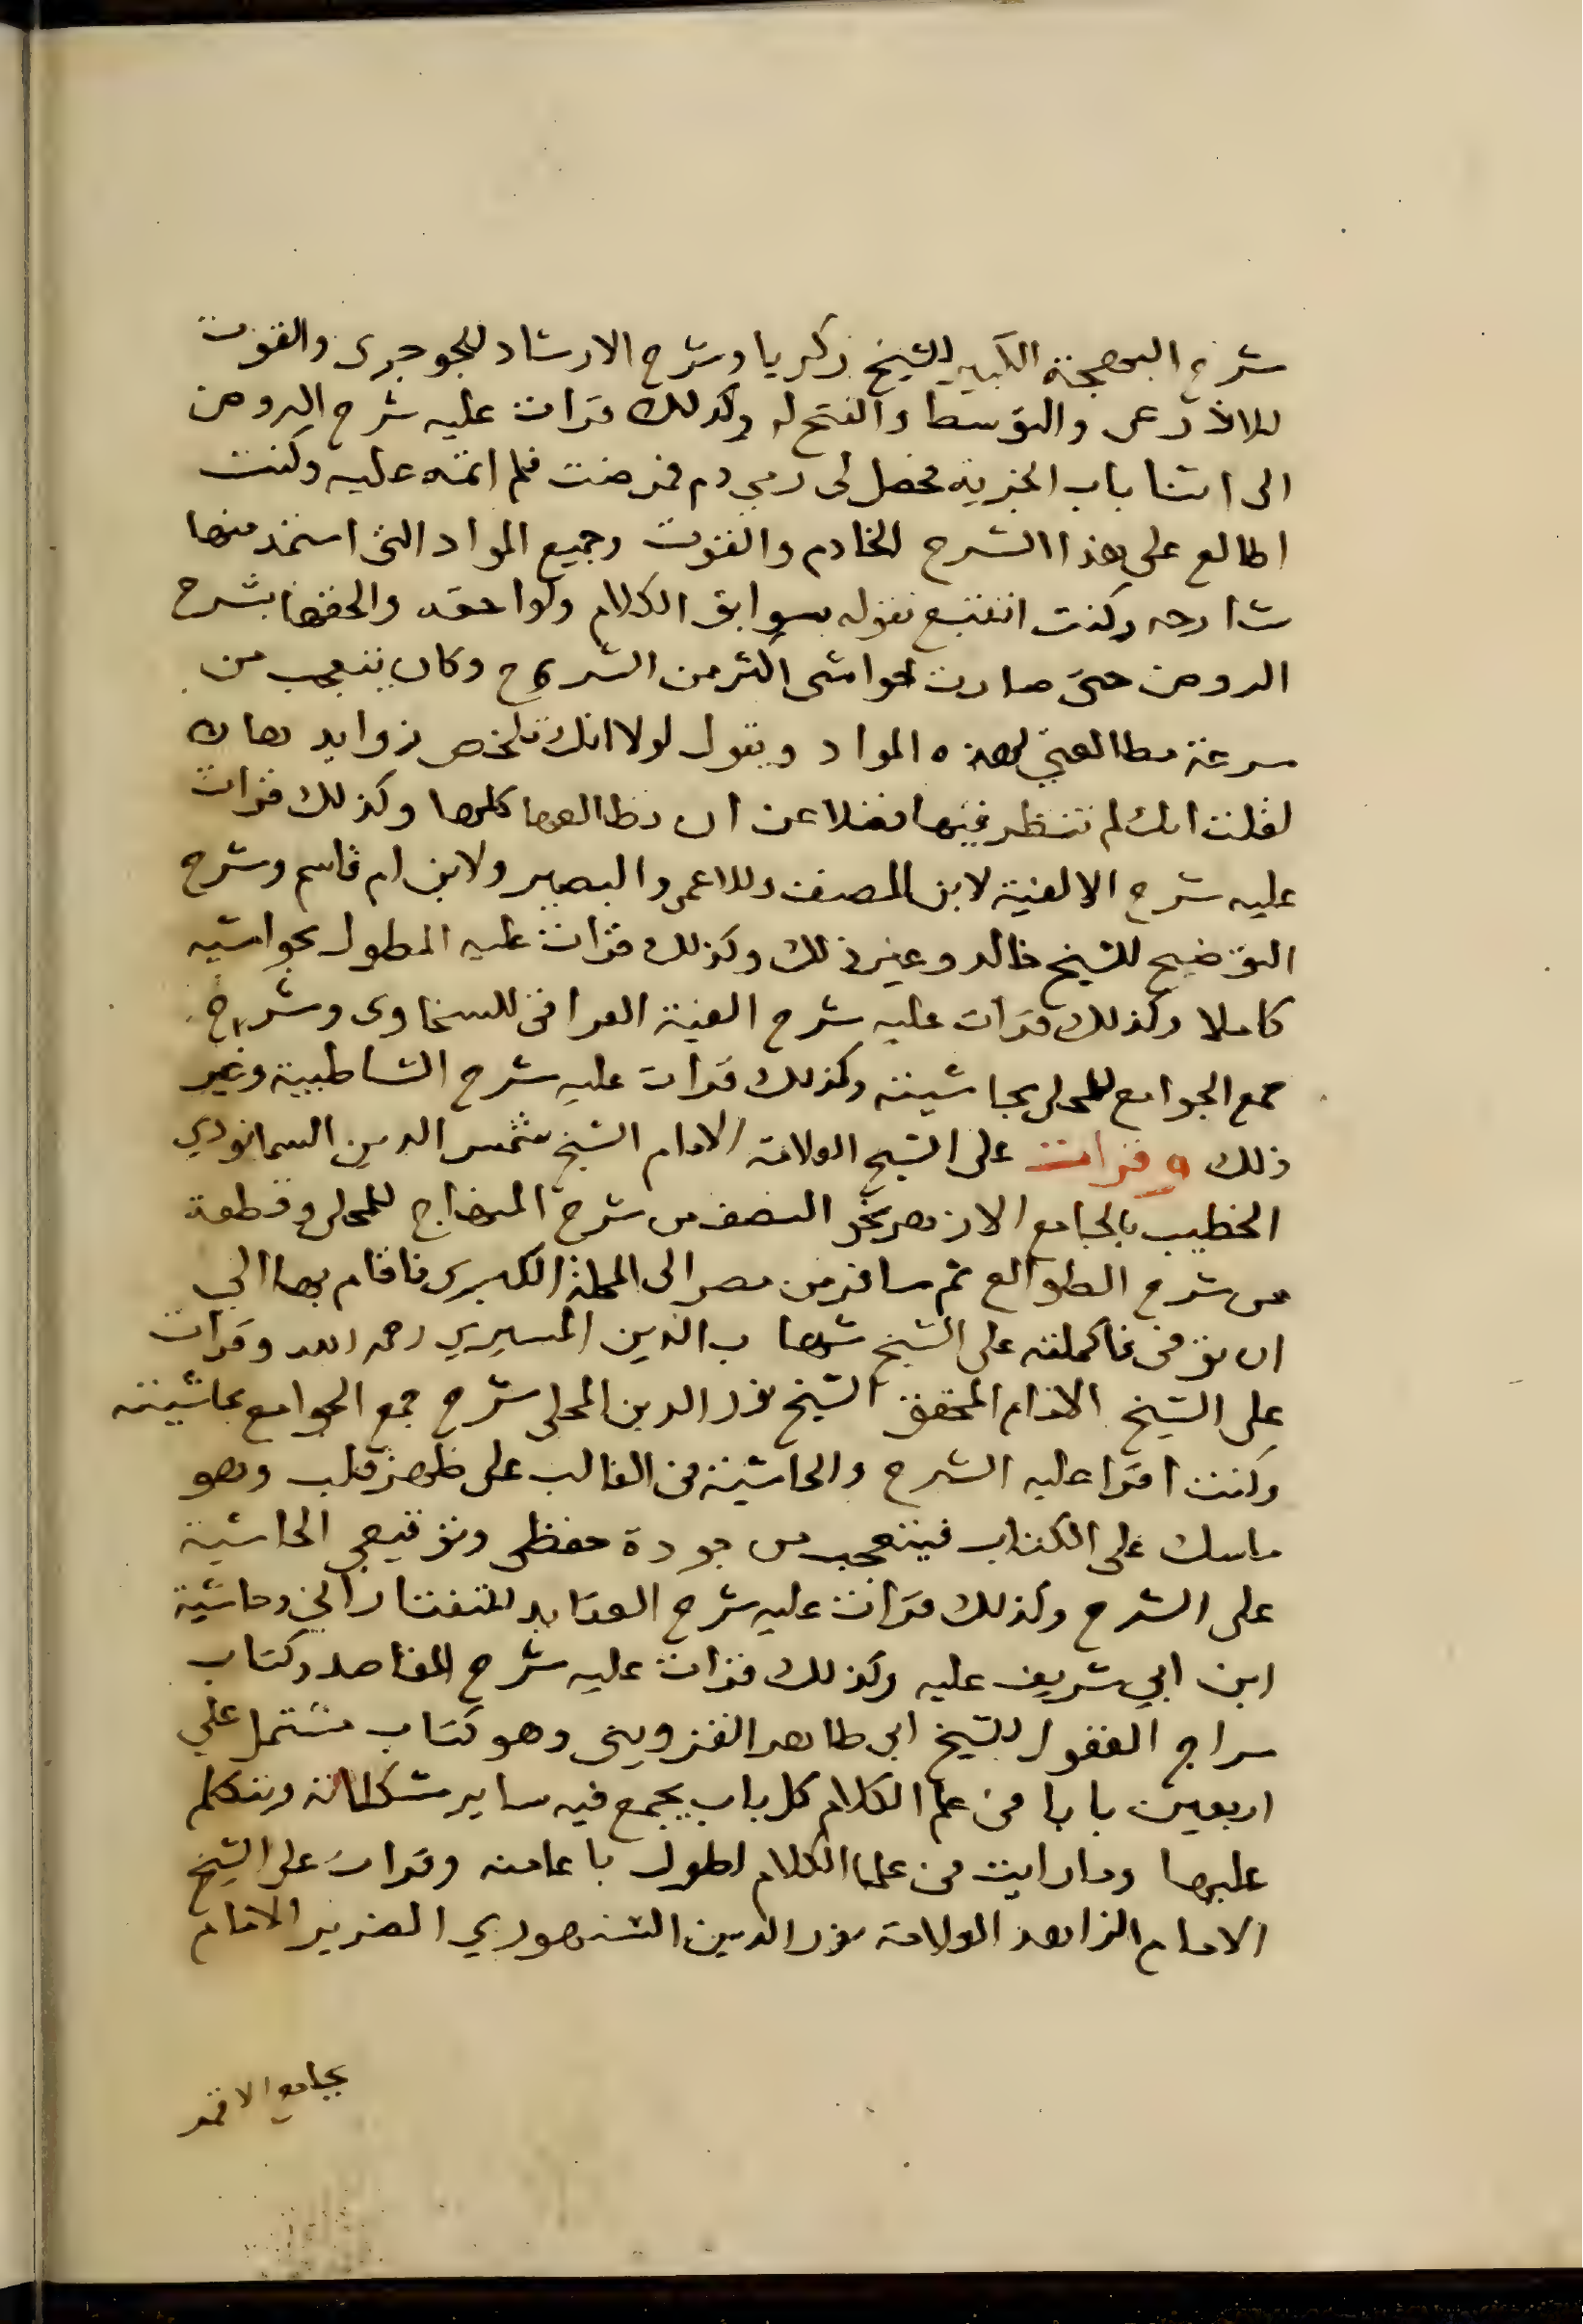 شرح البهجة الكبير للشيخ زكريا وشرح الارشاد للجوجرى والقوت
للاذرعى والتوسط والفتح له وكذلك قرات عليه شرح الروض
الى اثنا باب الجزية فحصل لى رمى دم فمرضت فلم اتمه عليه وكنت
اطالع على هذا الشرح الخادم والقوت وجميع المواد التى استمد منها
شارحه وكنت اتتبع نقوله بسوابق الكلام ولواحقه والحقها بشرح
الروض حتى صارت الحواشى اكثر من الشرح وكان يتعجب من
سرعة مطالعتى لهذه المواد ويقول لولا انك تلخص زوايد هاك
لقلت انك لم تنظر فيها فضلا عن ان تطالعها كلها وكذلك قرات
عليه شرح الالفية لابن المصنف وللاعمى والبصير ولابن ام قاسم وشرح
التوضيح للشيخ خالد وغير ذلك وكذلك قرات عليه المطول بحواشيه
كاملا وكذلك قرات عليه شرح الفية العراقى للسخاوى وشرح
جمع الجوامع للمحلى بحاشيته وكذلك قرات عليه شرح الشاطبية وغير
ذلك وقرات على الشيخ العلامة الامام الشيخ شمس الدين السمانودي
الخطيب بالجامع الازهر نحو النصف من شرح المنهاج للمحلى وقطعة
من شرح الطوالع ثم سافر من مصر الى المحلة الكبرى فاقام بها الي
ان توفى فاكملته على الشيخ شهاب الدين المسيري رحمه الله وقرات
على الشيخ الامام المحقق الشيخ نور الدين المحلى شرح جمع الجوامع بحاشيته
وكنت اقرا عليه الشرح والحاشية فى الغالب على ظهر قلب وهو
ماسك على الكتاب فيتعجب من جودة حفظى وتوقيعى الحاشية
على الشرح وكذلك قرات عليه شرح العقايد للتفتازاني وحاشية
ابن ابي شريف عليه وكذلك قرات عليه شرح المقاصد وكتاب
سراج العقول للشيخ ابى طاهر القزوينى وهو كتاب مشتمل علي
اربعين بابا فى علم الكلام كل باب يجمع فيه ساير مشكلاته ويتكلم
عليها وما رايت فى علما الكلام اطول باعا منه وقرات على الشيخ
الامام الزاهد العلامة نور الدين السنهوري الضرير الامام
بجامع الاقمر